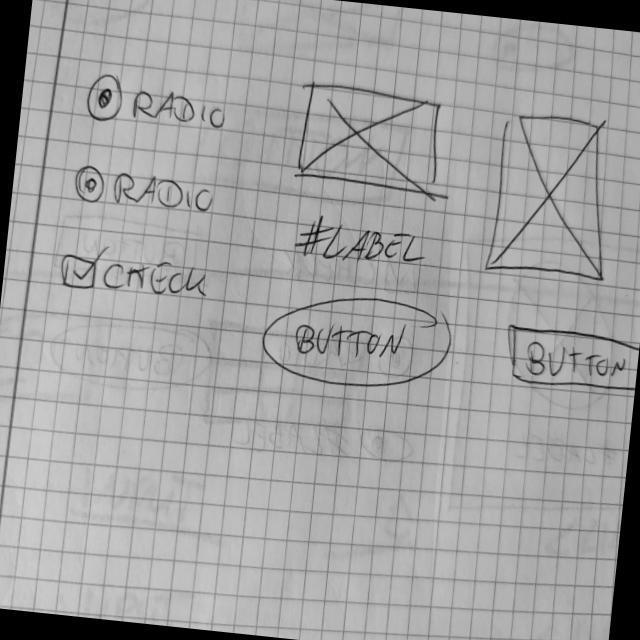 RADIO
RADIO
CHECK
#LABEL
BUTTON
BUTTON